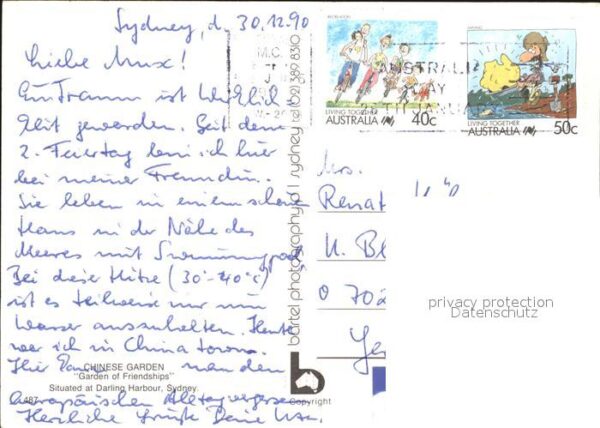 Sydney, d. 30.12.90
Liebe Mux!
Ein Traum ist Wirklich-
keit geworden. Seit dem
2. Feiertag bin ich hier
bei meiner Freundin.
Sie leben in einem schönen
Haus in der Nähe des
Meeres mit Swimmingpool.
Bei dieser Hitze (30°-40°C)
ist es teilweise nur im
Wasser auszuhalten. Heute
war ich in China town.
Hier kann man den
europäischen Alltag vergessen
Herzliche Grüße Deine
CHINESE GARDEN
"Garden of Friendships"
Situated at Darling Harbour, Sydney.
487
bartel photography p/l sydney tel (02) 389 8310
b
Copyright
RECREATION
LIVING TOGETHER
AUSTRALIA 40c
MINING
LIVING TOGETHER
AUSTRALIA 50c
M.C.
AUSTRALIA
DAY
26TH JANUARY
Mrs.
Renat
O 702
privacy protection
Datenschutz